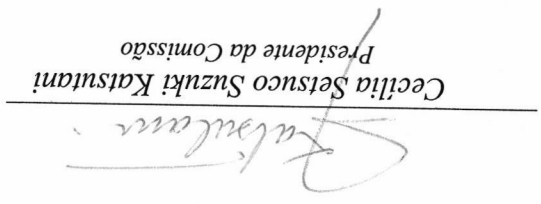 Katsutani
Cecília Setsuco Suzuki Katsutani
Presidente da Comissão